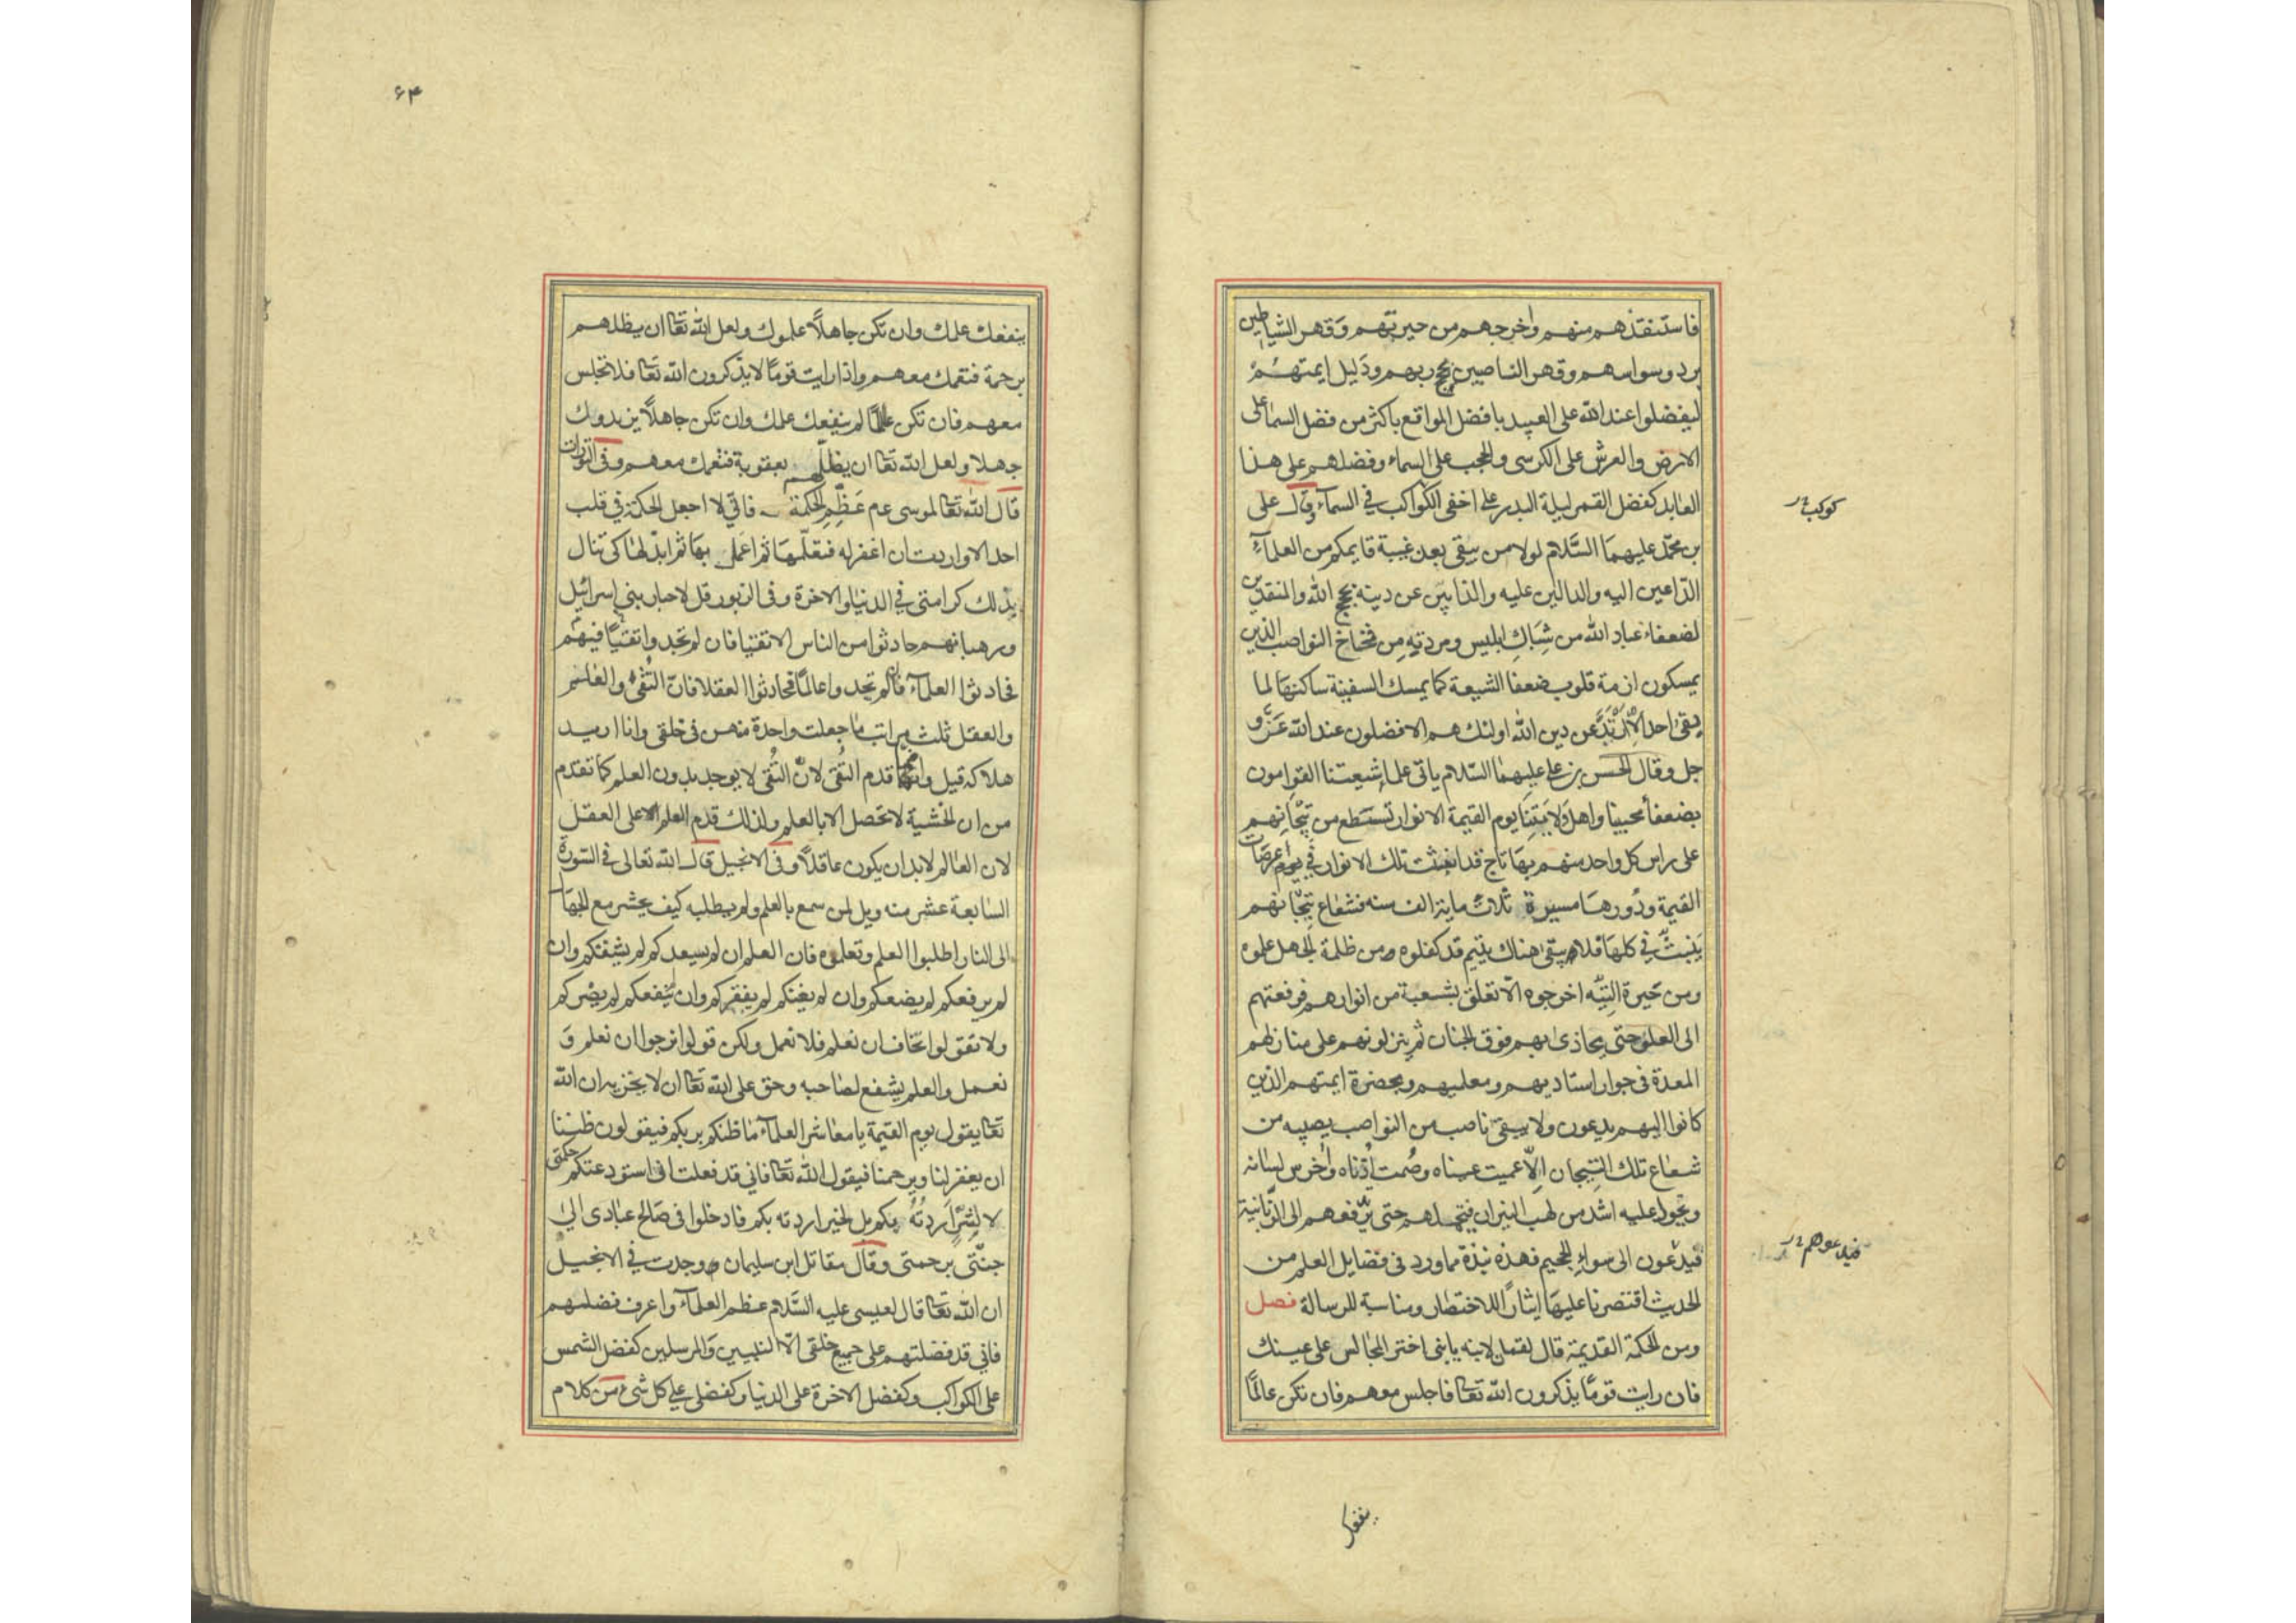 فاستنقذهم منهم واخرجهم من حيرتهم وقهر الشياطين
برد وسواسهم وقهر الناصبين بحجج ربهم ودليل ايمتهم
ليفضلوا عند الله على العبيد بافضل المواقع باكثر من فضل السما على
الارض والعرش على الكرسى والحجب على السماء وفضلهم على هذا
العابد كفضل القمر ليلة البدر على اخفى الكواكب في السماء وقال على
كوكب
بن محمد عليهما السلام لولا من يبقى بعد غيبة قايمكم من العلماء
الداعين اليه والدالين عليه والذابين عن دينه بحجج الله والمنقذين
لضعفاء عباد الله من شباك ابليس ومردته من فخاخ النواصب الذين
يمسكون ازمة قلوب ضعفا الشيعة كما يمسك السفينة ساكنها لما
بقى احد الا ارتد عن دين الله اولئك هم الافضلون عند الله عز و
جل وقال الحسن بن على عليهما السلام ياتى علما شيعتنا القوامون
بضعفا محبينا واهل ولايتنا يوم القيمة الانوار تسطع من تيجانهم
على راس كل واحد منهم بها تاج قد انبثت تلك الانوار في عرصات
القيمة ودورها مسيرة ثلاث ماية الف سنه فشعاع تيجانهم
ينبث في كلها فلا يبقى هناك يتيم قد كفلوه ومن ظلمة الجهل علموه
ومن حيرة التيه اخرجوه الا تعلق بشعبة من انوارهم فرفعتهم
الى العلو حتى يحاذى بهم فوق الجنان ثم ينزلونهم على منازلهم
المعدة في جوار استاديهم ومعلميهم وبحضرة ايمتهم الذين
كانوا اليهم يدعون ولا يبقى ناصب من النواصب يصيبه من
شعاع تلك التيجان الا عميت عيناه وصمت اذناه واخرس لسانه
ويحول عليه اشد من لهب النيران فيتحملهم حتى يدفعهم الى الزبانية
فيدعون الى سواء الجحيم فهذه نبذة مما ورد فى فضايل العلم من
فيدعوهم
الحديث اقتصرنا عليها ايثارا للاختصار ومناسبة للرسالة فصل
ومن الحكمة القديمة قال لقمان لابنه يا بنى اختر المجالس على عينك
فان رايت قوما يذكرون الله تعا فاجلس معهم فان تكن عالما
ينفعك
۶۴
ينفعك علمك وان تكن جاهلا علموك ولعل الله تعا ان يظلهم
برحمة فتعمك معهم واذا رايت قوما لا يذكرون الله تعا فلا تجلس
معهم فان تكن عالما لم ينفعك علمك وان تكن جاهلا يزيدوك
جهلا ولعل الله تعا ان يظلهم بعقوبة فتعمك معهم وفى التورات
قال الله تعا لموسى عم عظم الحكمة فانى لا اجعل الحكمة في قلب
احد الا واردت ان اغفر له فتعلمها ثم اعمل بها ثم ابذلها كى تنال
بذلك كرامتى في الدنيا والاخرة وفى الزبور قل لاحبار بنى اسرائيل
ورهبانهم حادثوا من الناس الاتقيا فان لم تجدوا تقيا فيهم
فحادثوا العلماء فان لم تجدوا عالما فحادثوا العقلا فان التقى والعلم
والعقل ثلث مراتب ما جعلت واحدة منهن في خلقى وانا اريد
هلاكه قيل وانما قدم التقى لان التقى لا يوجد بدون العلم كما تقدم
من ان الخشية لا تحصل الا بالعلم ولذلك قدم العلم على العقل
لان العالم لا بد ان يكون عاقلا وفى الانجيل قال الله تعالى في السورة
السابعة عشر منه ويل لمن سمع بالعلم ولم يطلبه كيف يحشر مع الجهال
الى النار اطلبوا العلم وتعلموه فان العلم ان لم يسعدكم لم يشقكم وان
لم يرفعكم لم يضعكم وان لم يغنكم لم يفقركم وان لم ينفعكم لم يضركم
ولا تقولوا نخاف ان نعلم فلا نعمل ولكن قولوا نرجوا ان نعلم و
نعمل والعلم يشفع لصاحبه وحق على الله تعا ان لا يخزيه ان الله
تعا يقول يوم القيمة يا معاشر العلماء ما ظنكم بربكم فيقولون ظننا
ان يغفر لنا ويرحمنا فيقول الله تعا فانى قد فعلت انى استودعتكم حكمتى
لا لشر اردته بكم بل لخير اردته بكم فادخلوا فى صالح عبادى الى
جنتى برحمتى وقال مقاتل ابن سليمان وجدت في الانجيل
ان الله تعا قال لعيسى عليه السلام عظم العلماء واعرف فضلهم
فانى قد فضلتهم على جميع خلقى الا النبيين والمرسلين كفضل الشمس
على الكواكب وكفضل الاخرة على الدنيا وكفضلى على كل شىء من كلام